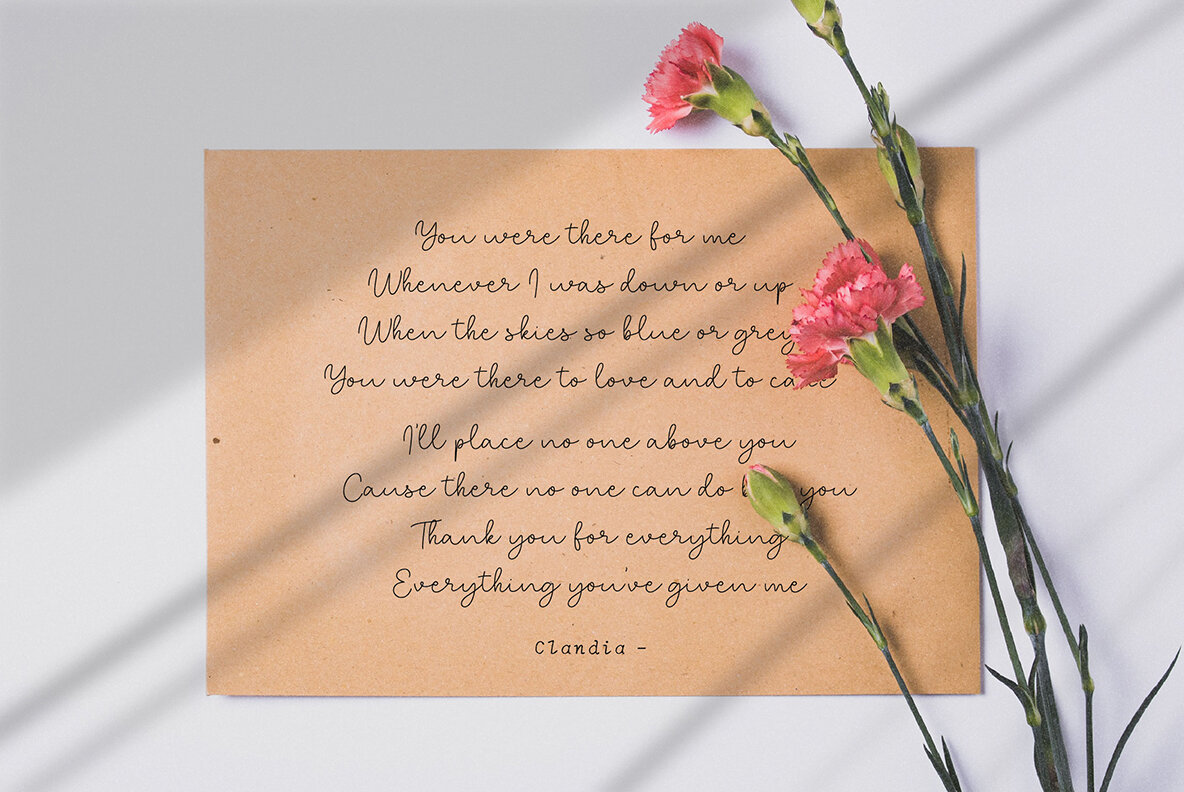 You were there for me
Whenever I was down or up
When the skies so blue or grey
You were there to love and to care
I'll place no one above you
Cause there no one can do you
Thank you for everything
Everything you've given me
Clandia -